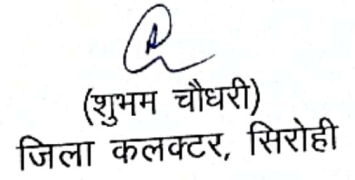 (शुभम चौधरी)
जिला कलक्टर, सिरोही